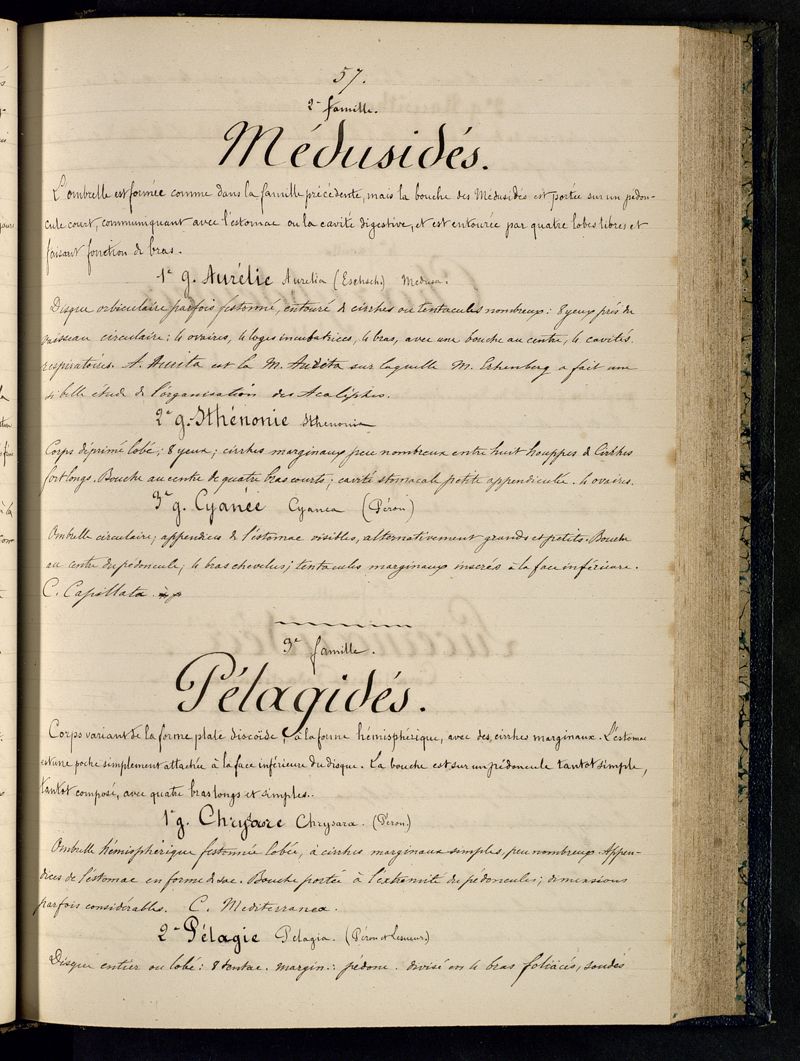 57.
2e famille.
Médusidés.
L'ombrelle est formée comme dans la famille précédente, mais la bouche des Médusidés est portée sur un pédon-
cule court, communiquant avec l'estomac ou la cavité digestive, et est entourée par quatre lobes libres et
faisant fonction de bras.
1e g. Aurélie Aurelia (Eschsch.) Medusa.
Disque orbiculaire parfois festonné, entouré de cirrhes ou tentacules nombreux : 8 yeux près du
vaisseau circulaire ; 4 ovaires, 4 loges incubatrices, 4 bras, avec une bouche au centre, 4 cavités
respiratoires. A. Aurita est la M. Aurita sur laquelle M. Erhenberg a fait une
si belle étude de l'organisation des Acalèphes.
2e g. Sthénonie Sthenonia
Corps déprimé lobé ; 8 yeux ; cirrhes marginaux peu nombreux entre huit houppes de Cirrhes
fort longs. Bouche au centre de quatre bras courts ; cavité stomacale petite appendiculée. 4 ovaires.
3e g. Cyanée Cyanea (Péron)
Ombrelle circulaire ; appendices de l'estomac visibles, alternativement grands et petits. Bouche
au centre du pédoncule ; 4 bras chevelus ; tentacules marginaux insérés à la face inférieure.
C. Capillata.
3e famille.
Pélagidés.
Corps variant de la forme plate discoïde, à la forme hémisphérique, avec des cirrhes marginaux. L'estomac
est une poche simplement attachée à la face inférieure du disque. La bouche est sur un pédoncule tantôt simple,
tantôt composé, avec quatre bras longs et simples.
1e g. Chrysare Chrysara. (Péron)
Ombrelle hémisphérique festonnée lobée, à cirrhes marginaux simples, peu nombreux. Appen-
dices de l'estomac en forme de sac. Bouche portée à l'extrémité du pédoncules ; dimensions
parfois considérables. C. Mediterranea.
2e Pélagie Pelagia. (Péron et Lesueur.)
Disque entier ou lobé : 8 tentac. margin. : pédonc. divisé en 4 bras foliacés, soudés